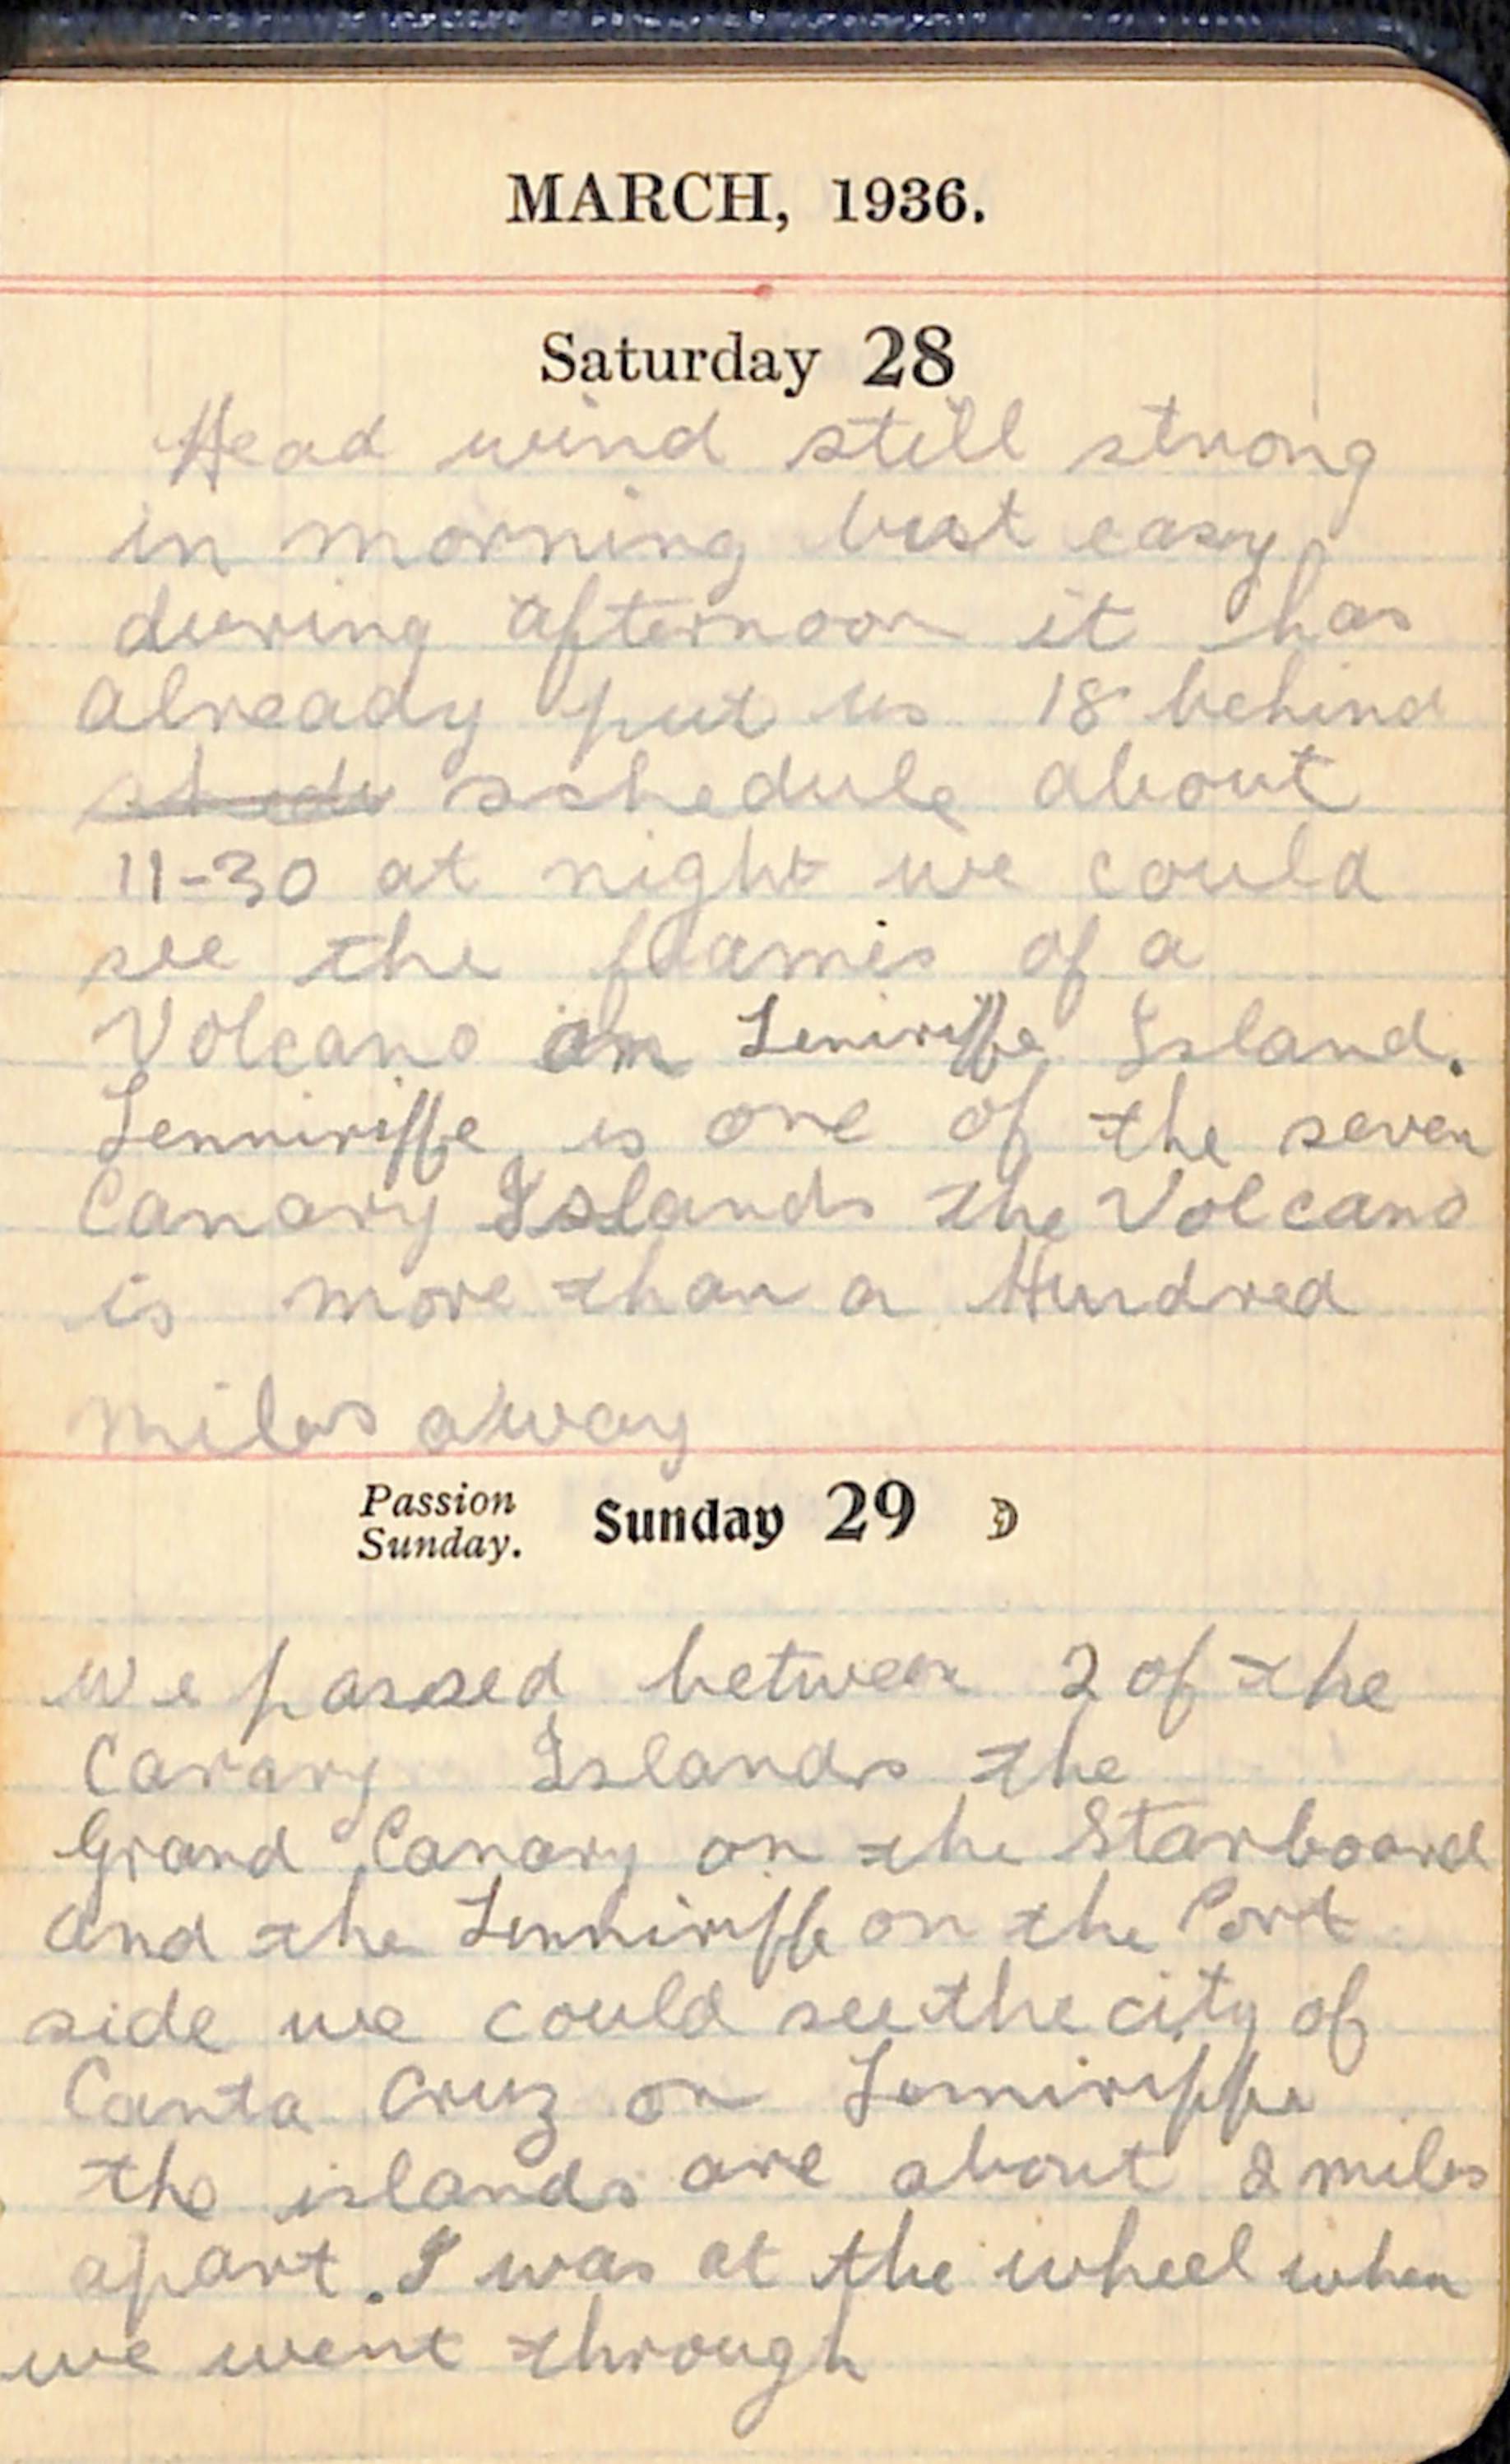 MARCH, 1936.
Saturday 28
Head wind still strong
in morning but easy
during afternoon it has
already put us 18 behind
shedu sshedule about
11-30 at night we could
see the flames of a
Volcano on Teniriffe Island.
Tenniriffe is one of the seven
Canary Islands the Volcano
is more than a Hundred
miles away
Passion Sunday. Sunday 29
We passed between 2 of the
Canary Islands the
Grand Canary on the Starboard
and the Tenniriffe on the Port
side we could see the city of
Canta Cruz on Tenniriffe
the islands are about 2 miles
apart. I was at the wheel when
we went through